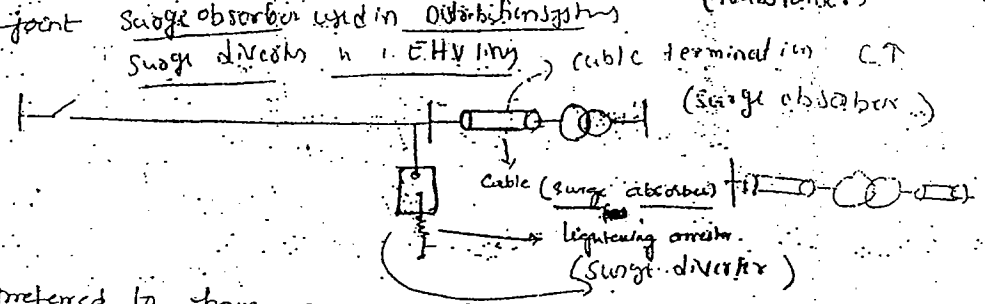 joint surge absorber used in Distribution systems
surge diverters " . EHV lines
cable termination C↑
(surge absorber)
cable (surge absorber)
lightening arrester.
(surge diverter)
preferred to have